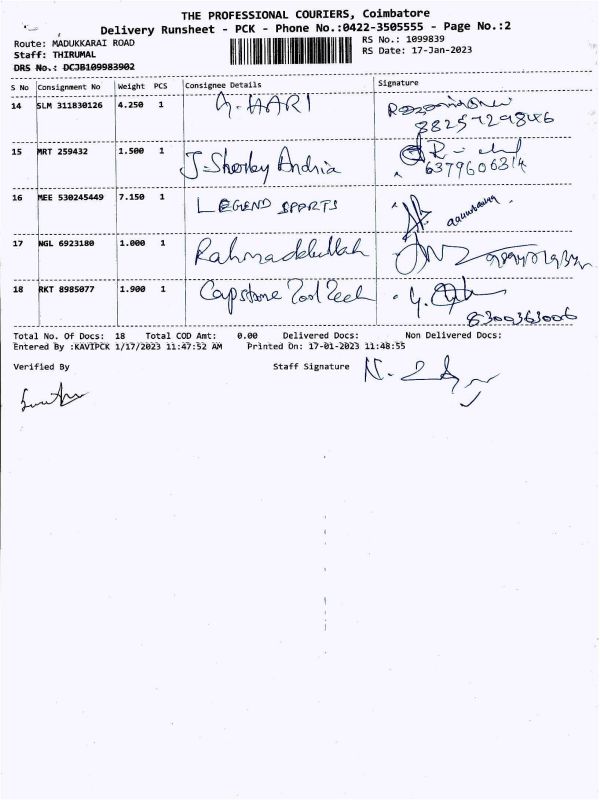 THE PROFESSIONAL COURIERS, Coimbatore
Delivery Runsheet - PCK - Phone No.:0422-3505555 - Page No.:2
Route: MADUKKARAI ROAD
RS No.: 1099839
Staff: THIRUMAL
RS Date: 17-Jan-2023
DRS No.: DCJB109983902
S No Consignment No Weight PCS Consignee Details Signature
14 SLM 311830126 4.250 1 G-HARI
8825729846
15 MRT 259432 1.500 1 J-Sherley Andria
6379606314
16 MEE 530245449 7.150 1 LEGEND SPORTS
17 NGL 6923180 1.000 1 Rahmadullah
18 RKT 8985077 1.900 1 Capstone Tool Tech
8300363006
Total No. Of Docs: 18 Total COD Amt: 0.00 Delivered Docs: Non Delivered Docs:
Entered By :KAVIPCK 1/17/2023 11:47:52 AM Printed On: 17-01-2023 11:48:55
Verified By Staff Signature